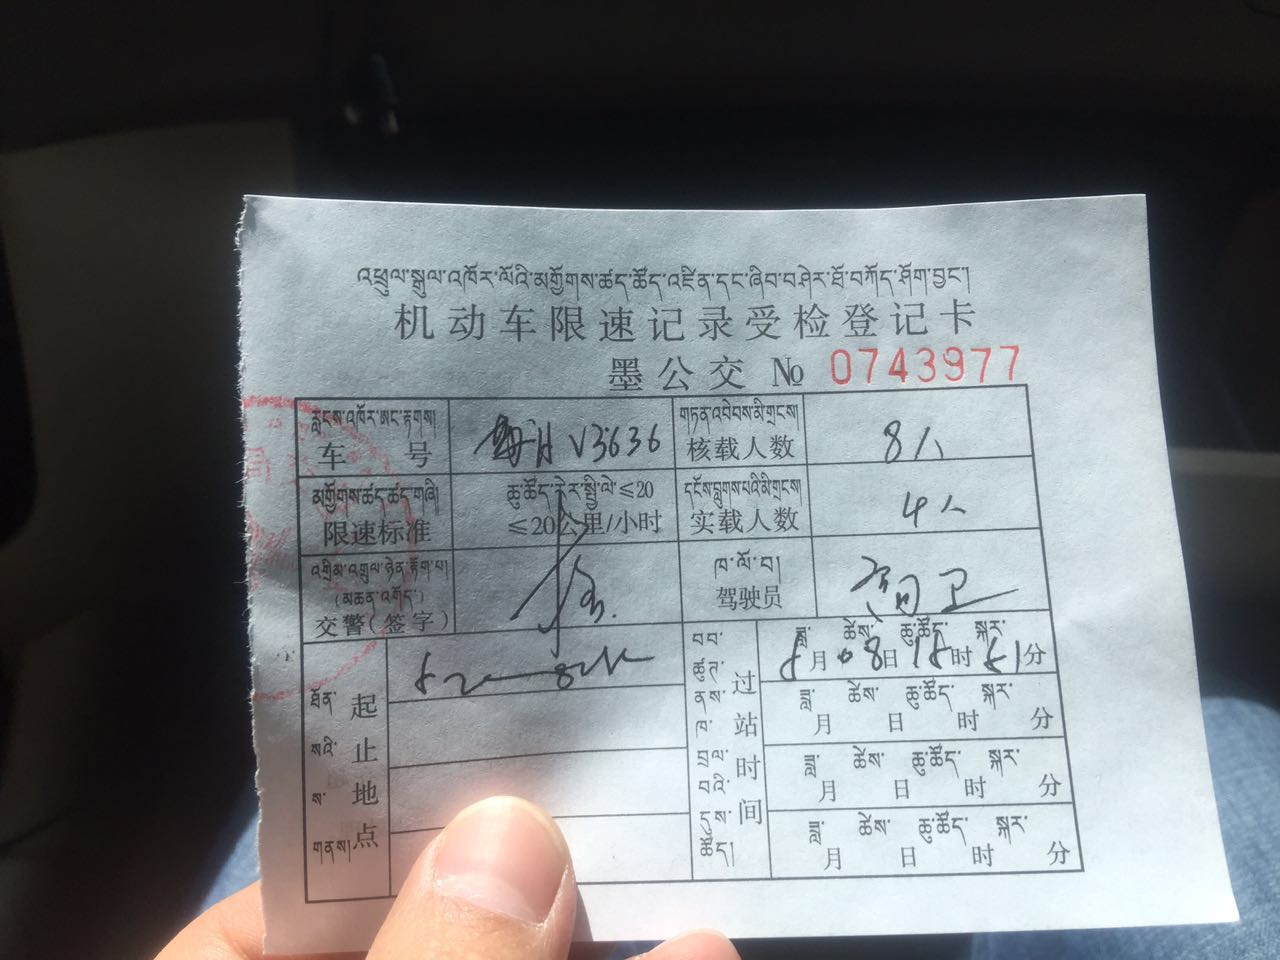 འཕྲུལ་སྐུལ་འཁོར་ལོའི་མགྱོགས་ཚད་ཚོད་འཛིན་དང་ཞིབ་བཤེར་ཐོ་བཀོད་ཤོག་བྱང།
机动车限速记录受检登记卡
墨公交 № 0743977
རླངས་འཁོར་ཨང་རྟགས། གཏན་འབེབས་མི་གྲངས།
车号 V3636 核载人数 8人
མགྱོགས་ཚད་ཚད་གཞི། ཆུ་ཚོད་རེར་སྤྱི་ལེ་≤20 དངོས་བླུགས་པའི་མི་གྲངས།
限速标准 ≤20公里/小时 实载人数 4人
འགྲིམ་འགྲུལ་ཉེན་རྟོག་པ། ཁ་ལོ་བ།
(མཆན་འགོད་) 驾驶员
交警(签字)
ཐོན་སའི་ས་གནས། 起止地点
过站时间
ཟླ་ ཚེས་ ཆུ་ཚོད་ སྐར་
月08日18时 分
ཟླ་ ཚེས་ ཆུ་ཚོད་ སྐར་
月 日 时 分
ཟླ་ ཚེས་ ཆུ་ཚོད་ སྐར་
月 日 时 分
ཟླ་ ཚེས་ ཆུ་ཚོད་ སྐར་
月 日 时 分